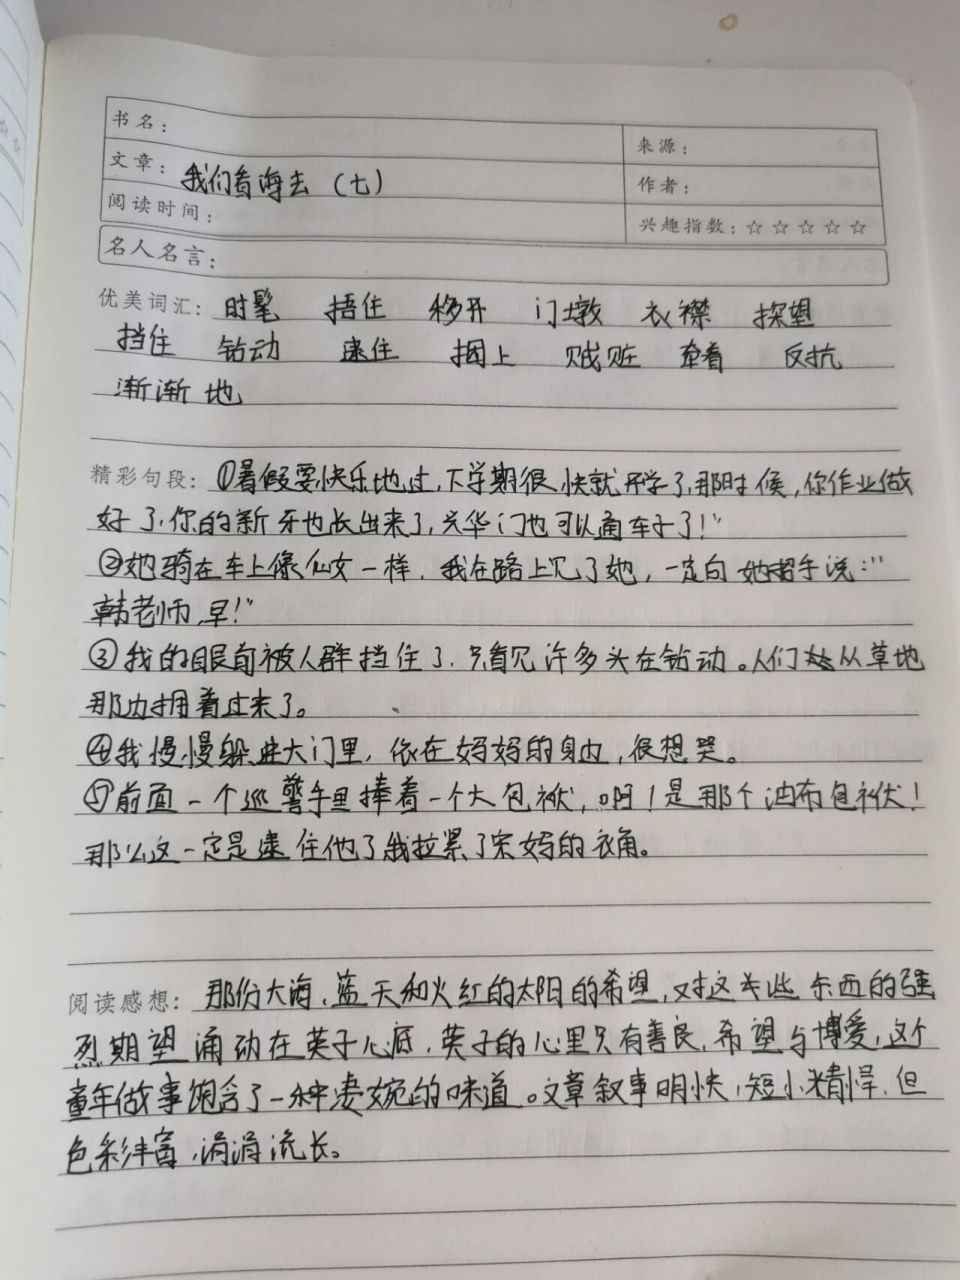 书名：
来源：
文章：我们看海去（七）
作者：
阅读时间：
兴趣指数：☆☆☆☆☆
名人名言：
优美词汇：时髦 捂住 移开 门墩 衣襟 探望
挡住 钻动 逮住 捆上 贼赃 牵着 反抗
渐渐地
精彩句段：①暑假要快乐地过，下学期很快就开学了，那时候，你作业做
好了，你的新牙也长出来了，兴华门也可以通车子了！”
②她骑在车上像仙女一样，我在路上见了她，一定向她招手说：“
韩老师，早！”
③我的眼前被人群挡住了，只看见许多头在钻动。人们从草地
那边拥着过来了。
④我慢慢躲进大门里，依在妈妈的身边，很想哭。
⑤前面一个巡警手里捧着一个大包袱，啊！是那个油布包袱！
那么这一定是逮住他了我拉紧了宋妈的衣角。
阅读感想：那份大海，蓝天和火红的太阳的希望，对这些东西的强
烈期望涌动在英子心底，英子的心里只有善良，希望与博爱，这个
童年做事饱含了一种凄婉的味道。文章叙事明快，短小精悍，但
色彩丰富，涓涓流长。